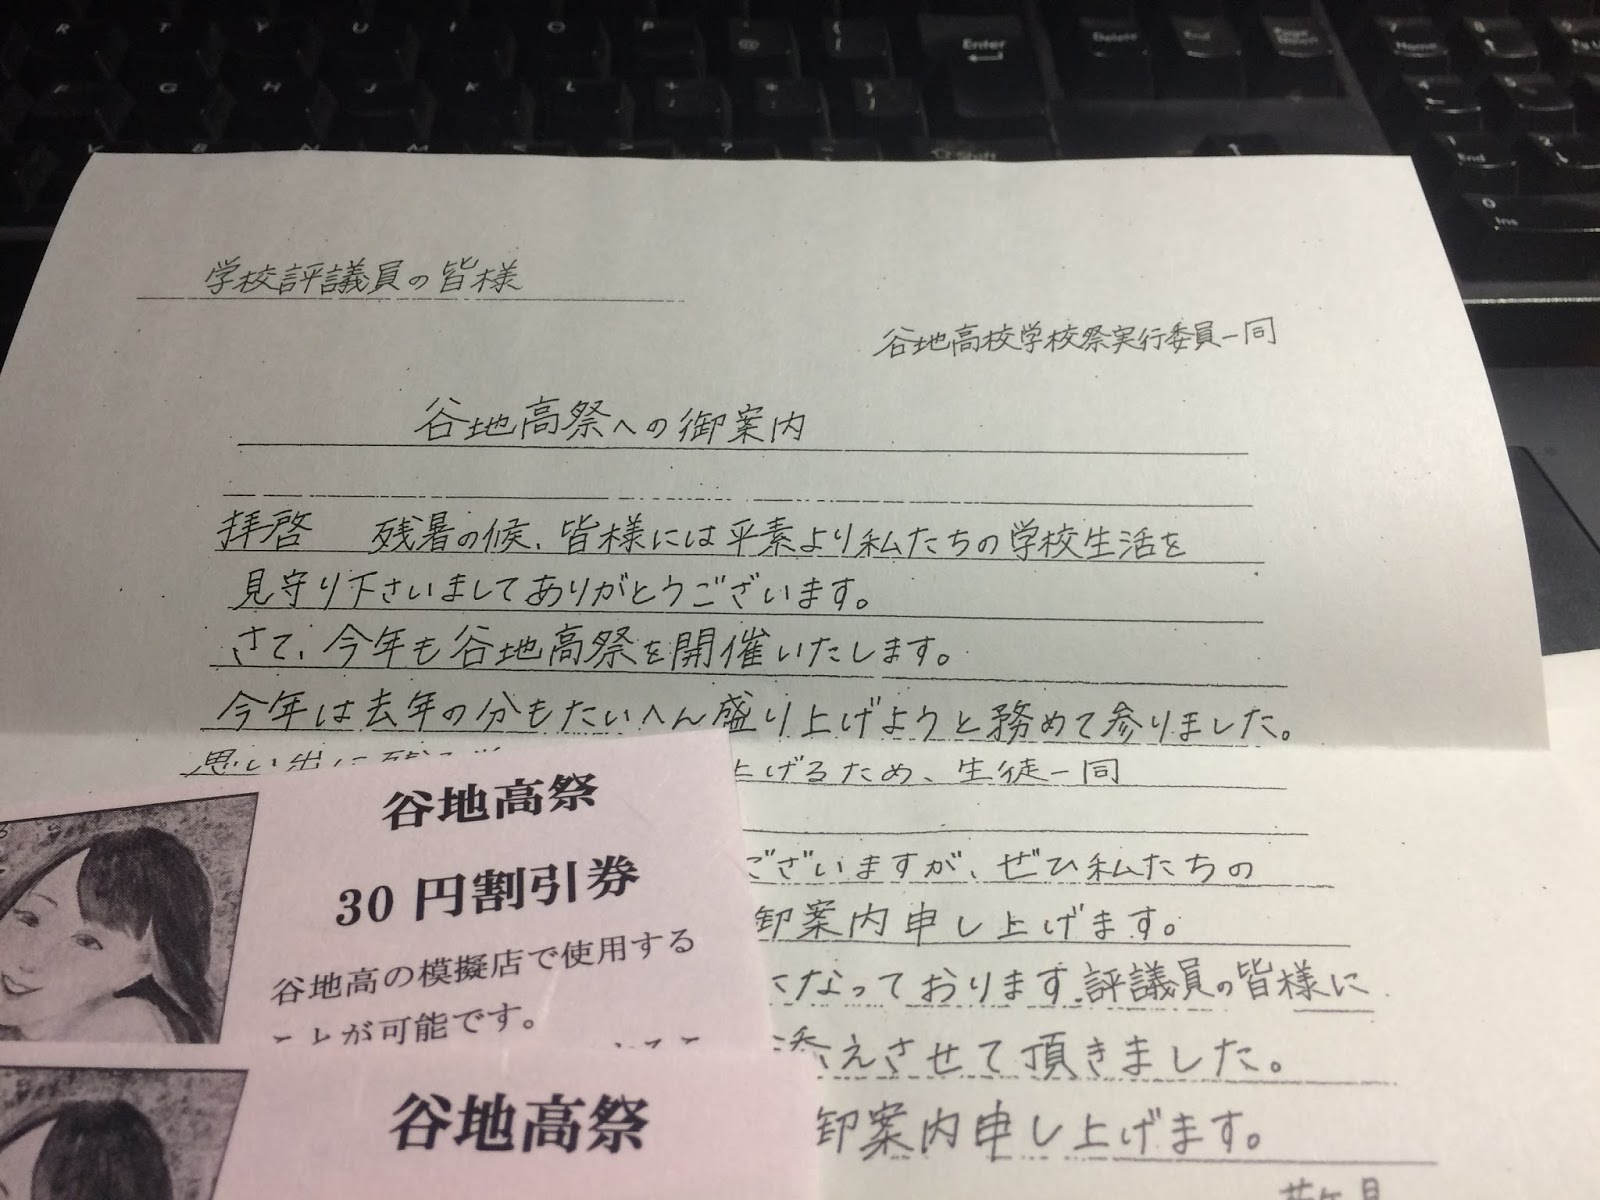 R T Y U I O P
Enter
Delete
End
Page Down
7 Home
F G H J K L
Shift
1 End
2
0 Ins
学校評議員の皆様
谷地高校学校祭実行委員一同
谷地高祭への御案内
拝啓 残暑の候、皆様には平素より私たちの学校生活を
見守り下さいましてありがとうございます。
さて、今年も谷地高祭を開催いたします。
今年は去年の分もたいへん盛り上げようと務めて参りました。
思い出に残る
上げるため、生徒一同
ございますが、ぜひ私たちの
御案内申し上げます。
になっております評議員の皆様に
添えさせて頂きました。
御案内申し上げます。
谷地高祭
30 円割引券
谷地高の模擬店で使用する
ことが可能です。
谷地高祭